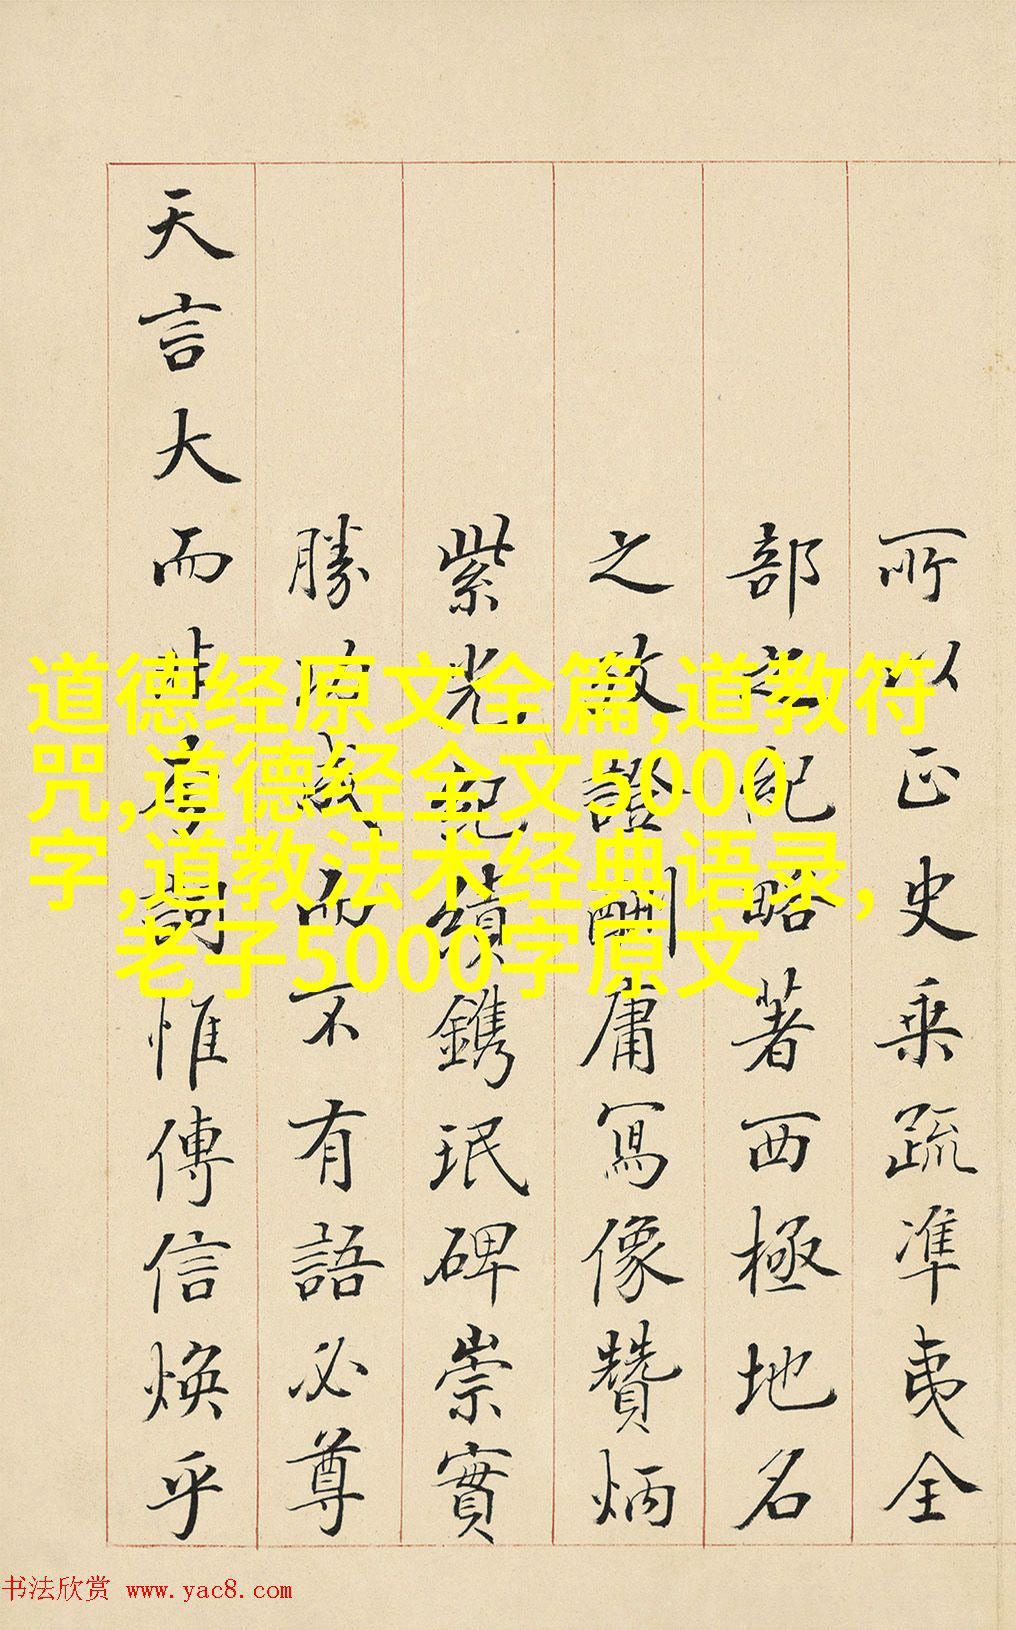 所以正史乘疏準夷全
部之紀略著西極地名
之攷證酬庸寫像贊炳
紫光紀績鐫珉碑崇實
勝功成而不有語必尊
天言大而非詞惟傳信煥乎
道德经原文全篇,道教符
咒,道德经全文5000
字,道教法术经典语录,
老子5000字原文
书法欣赏 www.yac8.com